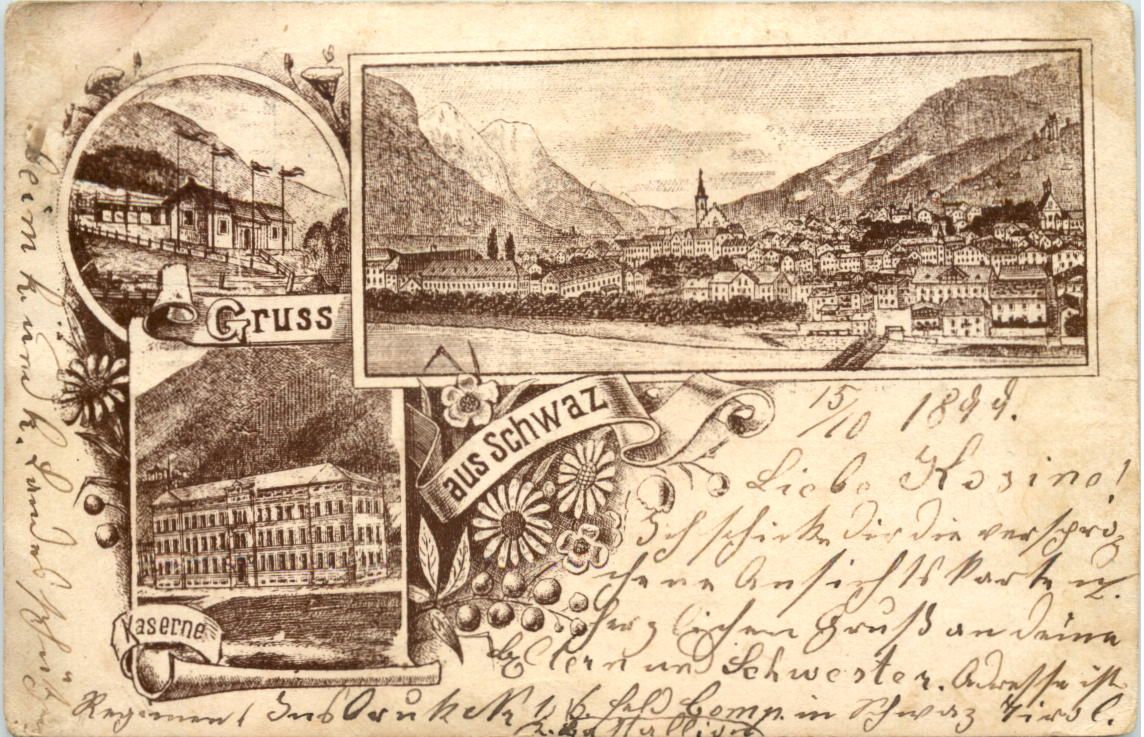 Gruss
aus Schwaz
Kaserne
15/10 1899.
Liebe Rosina!
Ich schicke Dir die verspro-
chene Ansichtskarte u.
herzlichen Gruß an deine
Eltern und Schwester. Adresse ist
k. und k. Landes
Regiment Innsbruck No 1, 6. feld Comp. in Schwaz Tirol.
2. Battallion